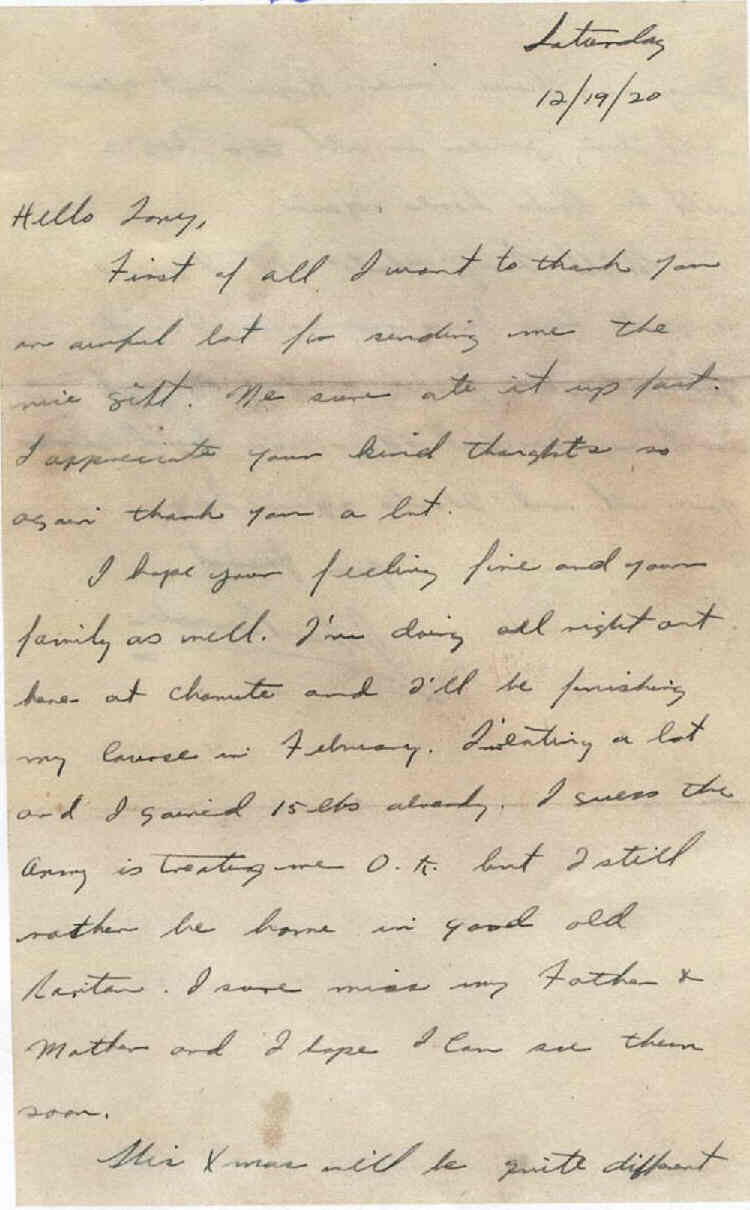 Saturday
12/19/20
Hello Tony,
First of all I want to thank you
an awful lot for sending me the
nice gift. We sure ate it up fast.
I appreciate your kind thoughts so
again thank you a lot.
I hope your feeling fine and your
family as well. I'm doing all right out
here at Chanute and I'll be finishing
my Course in February. I'm eating a lot
and I gained 15 lbs already. I guess the
Army is treating me O.K. but I still
rather be home in good old
Raritan. I sure miss my Father &
Mother and I hope I Can see them
soon.
This Xmas will be quite different